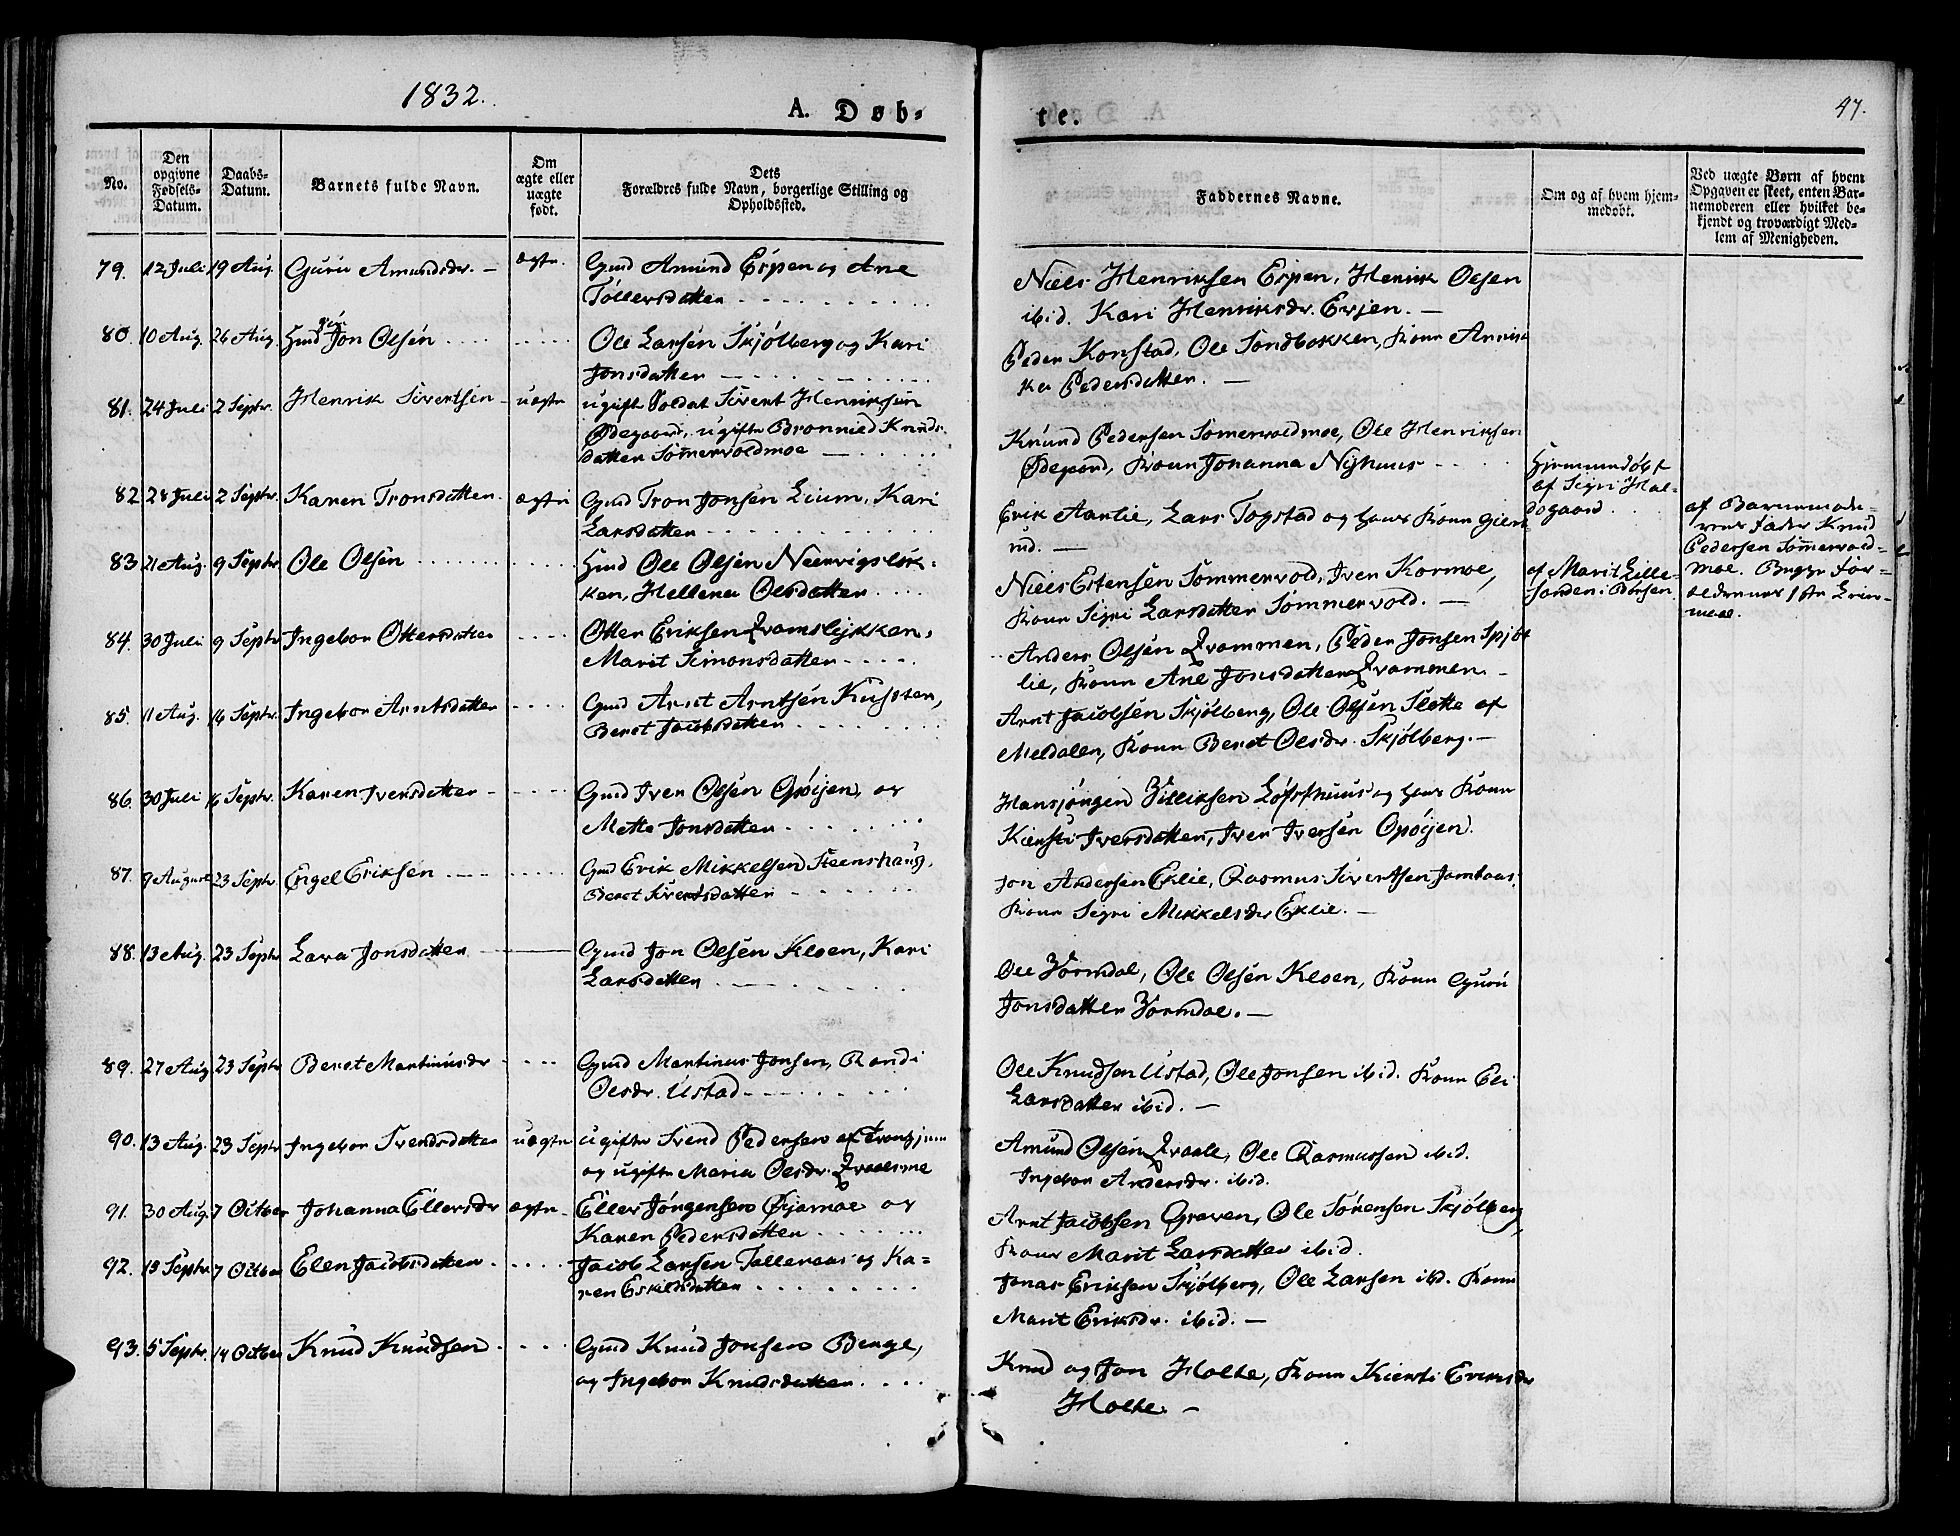 1832.
A. Døb-
te.
47.
No.
Den
opgivne
Fødsels-
Datum.
Daabs-
Datum.
Barnets fulde Navn.
Om
ægte eller
uægte
født.
Dets
Forældres fulde Navn, borgerlige Stilling og
Opholdssted.
Faddernes Navne.
Om og af hvem hjem-
medøbt.
Ved uægte Børn af hvem
Opgaven er skeet, enten Bar-
nemoderen eller hvilket be-
kjendt og troværdigt Med-
lem af Menigheden.
79. 12 Juli 19 Aug. Guru Amundsdr. – ægte. Gmd Amund Espen og Ane
Tollersdatten
Niels Henriksen Espen, Henrik Olsen
ibid. Kari Henriksdr. Espen. –
80. 10 Aug. 26 Aug. Jon Olsen Ole Larsen Skjølberg og Kari
Jonsdatten
Peder Konstad, Ole Sondbakken, Konn Annik
ka Pedersdatten. –
81. 24 Juli 2 Septr. Henrik Sivertsen – uægte ugifte Soldat Sivert Henriksen
Ødegaard, ugifte Bronnild Knuds
datten Sømervoldmoe
Knund Pedersen Sømervoldmoe, Ole Henriksen
Ødegaard, Konn Johanna Nyhuus
Hjemmedøbt
af Sigri Hal-
dogaard
af Barnemode-
rens Fader Knud
Pedersen Sømervold-
moe. Begge For-
ældrenes 1ste Leier-
maal.
82. 28 Juli 2 Septr. Karen Tronsdatten ægte Gmd Tron Jonsen Lium, Kari
Larsdatten
Erik Aarlie, Lars Togstad og hans Konn Gien
rud. –
83. 21 Aug. 9 Septr Ole Olsen Hmd Ole Olsen Neervigsløk-
ken, Hellena Olsdatten
Niels Estensen Sømmervold, Iver Kormoe,
Konn Sigri Larsdatten Sømmervold. –
af Marit Lille-
jorden i Børsen
84. 30 Juli 9 Septr Ingebor Ottersdatten Otter Eriksen Qvamslykken,
Marit Simonsdatten
Anders Olsen Qvammen, Peder Jonsen Spjøt
lie, Konn Ane Jonsdatten Qvammen –
85. 11 Aug. 16 Septr. Ingebor Arntsdatten Gmd Arnt Arntsen
Beret Jacobsdatten
Arnt Jacobsen Skjølberg, Ole Olsen Slette af
Meldalen, Konn Beret Olsdr. Skjølberg. –
86. 30 Juli 16 Septr. Karen Iversdatten Gmd Iver Olsen Opøijen, og
Mette Jonsdatten
Hansjørgen Villiksen Løfsthuus og hans Konn
Kiersti Iversdatten, Iver Iversen Opøijen.
87. 9 August 23 Septr. Engel Eriksen Gmd Erik Mikkelsen Steenshaug,
Beret Sivertsdatten
Jon Andersen Eklie, Rasmus Sivertsen
Konn Sigri Mikkelsdr Eklie. –
88. 13 Aug. 23 Septr Lava Jonsdatten Gmd Jon Olsen Kloen, Kari
Larsdatten
Ole Vormdal, Ole Olsen Kloen, Konn Guru
Jonsdatten Vormdal. –
89. 27 Aug 23 Septr Beret Martinusdr Gmd Martinus Jonsen, Randi
Olsdr. Ustad
Ole Knudsen Ustad, Ole Jonsen ibid. Konn Eli
Larsdatten ibid. –
90. 13 Aug. 23 Septr Ingebor Svendsdatten uægte ugifte Svend Pedersen af Tronhjem
og ugifte Maria Olsdr. Qvaalsme
Amund Olsen Qvaale, Ole Rasmussen ibid.
Ingebor Andersdr. ibid.
91. 30 Aug. 7 Octber Johanna Ellersdr ægte. Eller Jørgensen Øyamoe og
Karen Pedersdatten
Arnt Jacobsen Graven, Ole Sørensen Skjølberg,
Konn Marit Larsdatten ibid.
92. 18 Septr 7 Octber Elen Jacobsdatten Jacob Larsen Tolleraas og Ka-
ren Eskildsdatten
Jonas Eriksen Skjølberg, Ole Larsen ibd. Konn
Marit Eriksdr. ibid. –
93. 5 Septr. 14 Octber Knud Knudsen Gmd Knud Jonsen Benge,
og Ingebor Knudsdatten
Knud og Jon Holte, Konn Kiersti Eriksdr
Holte. –